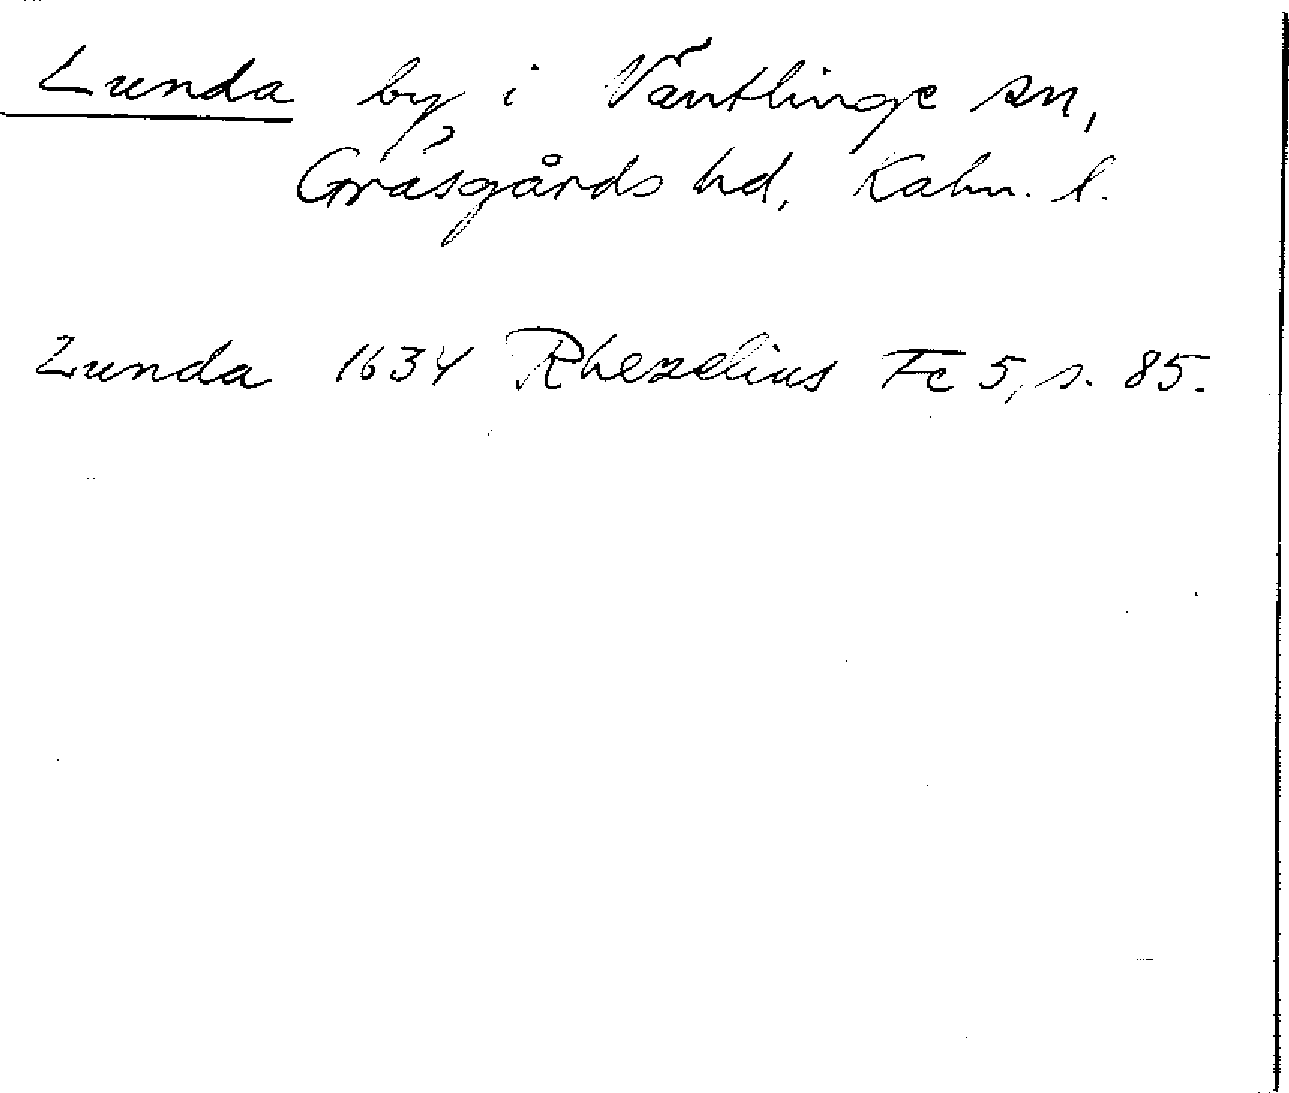 Lunda by i Väntlinge sn,
Gräsgårds hd, Kalm. l.
Lunda 1634 Rhezelius Fc 5, s. 85.